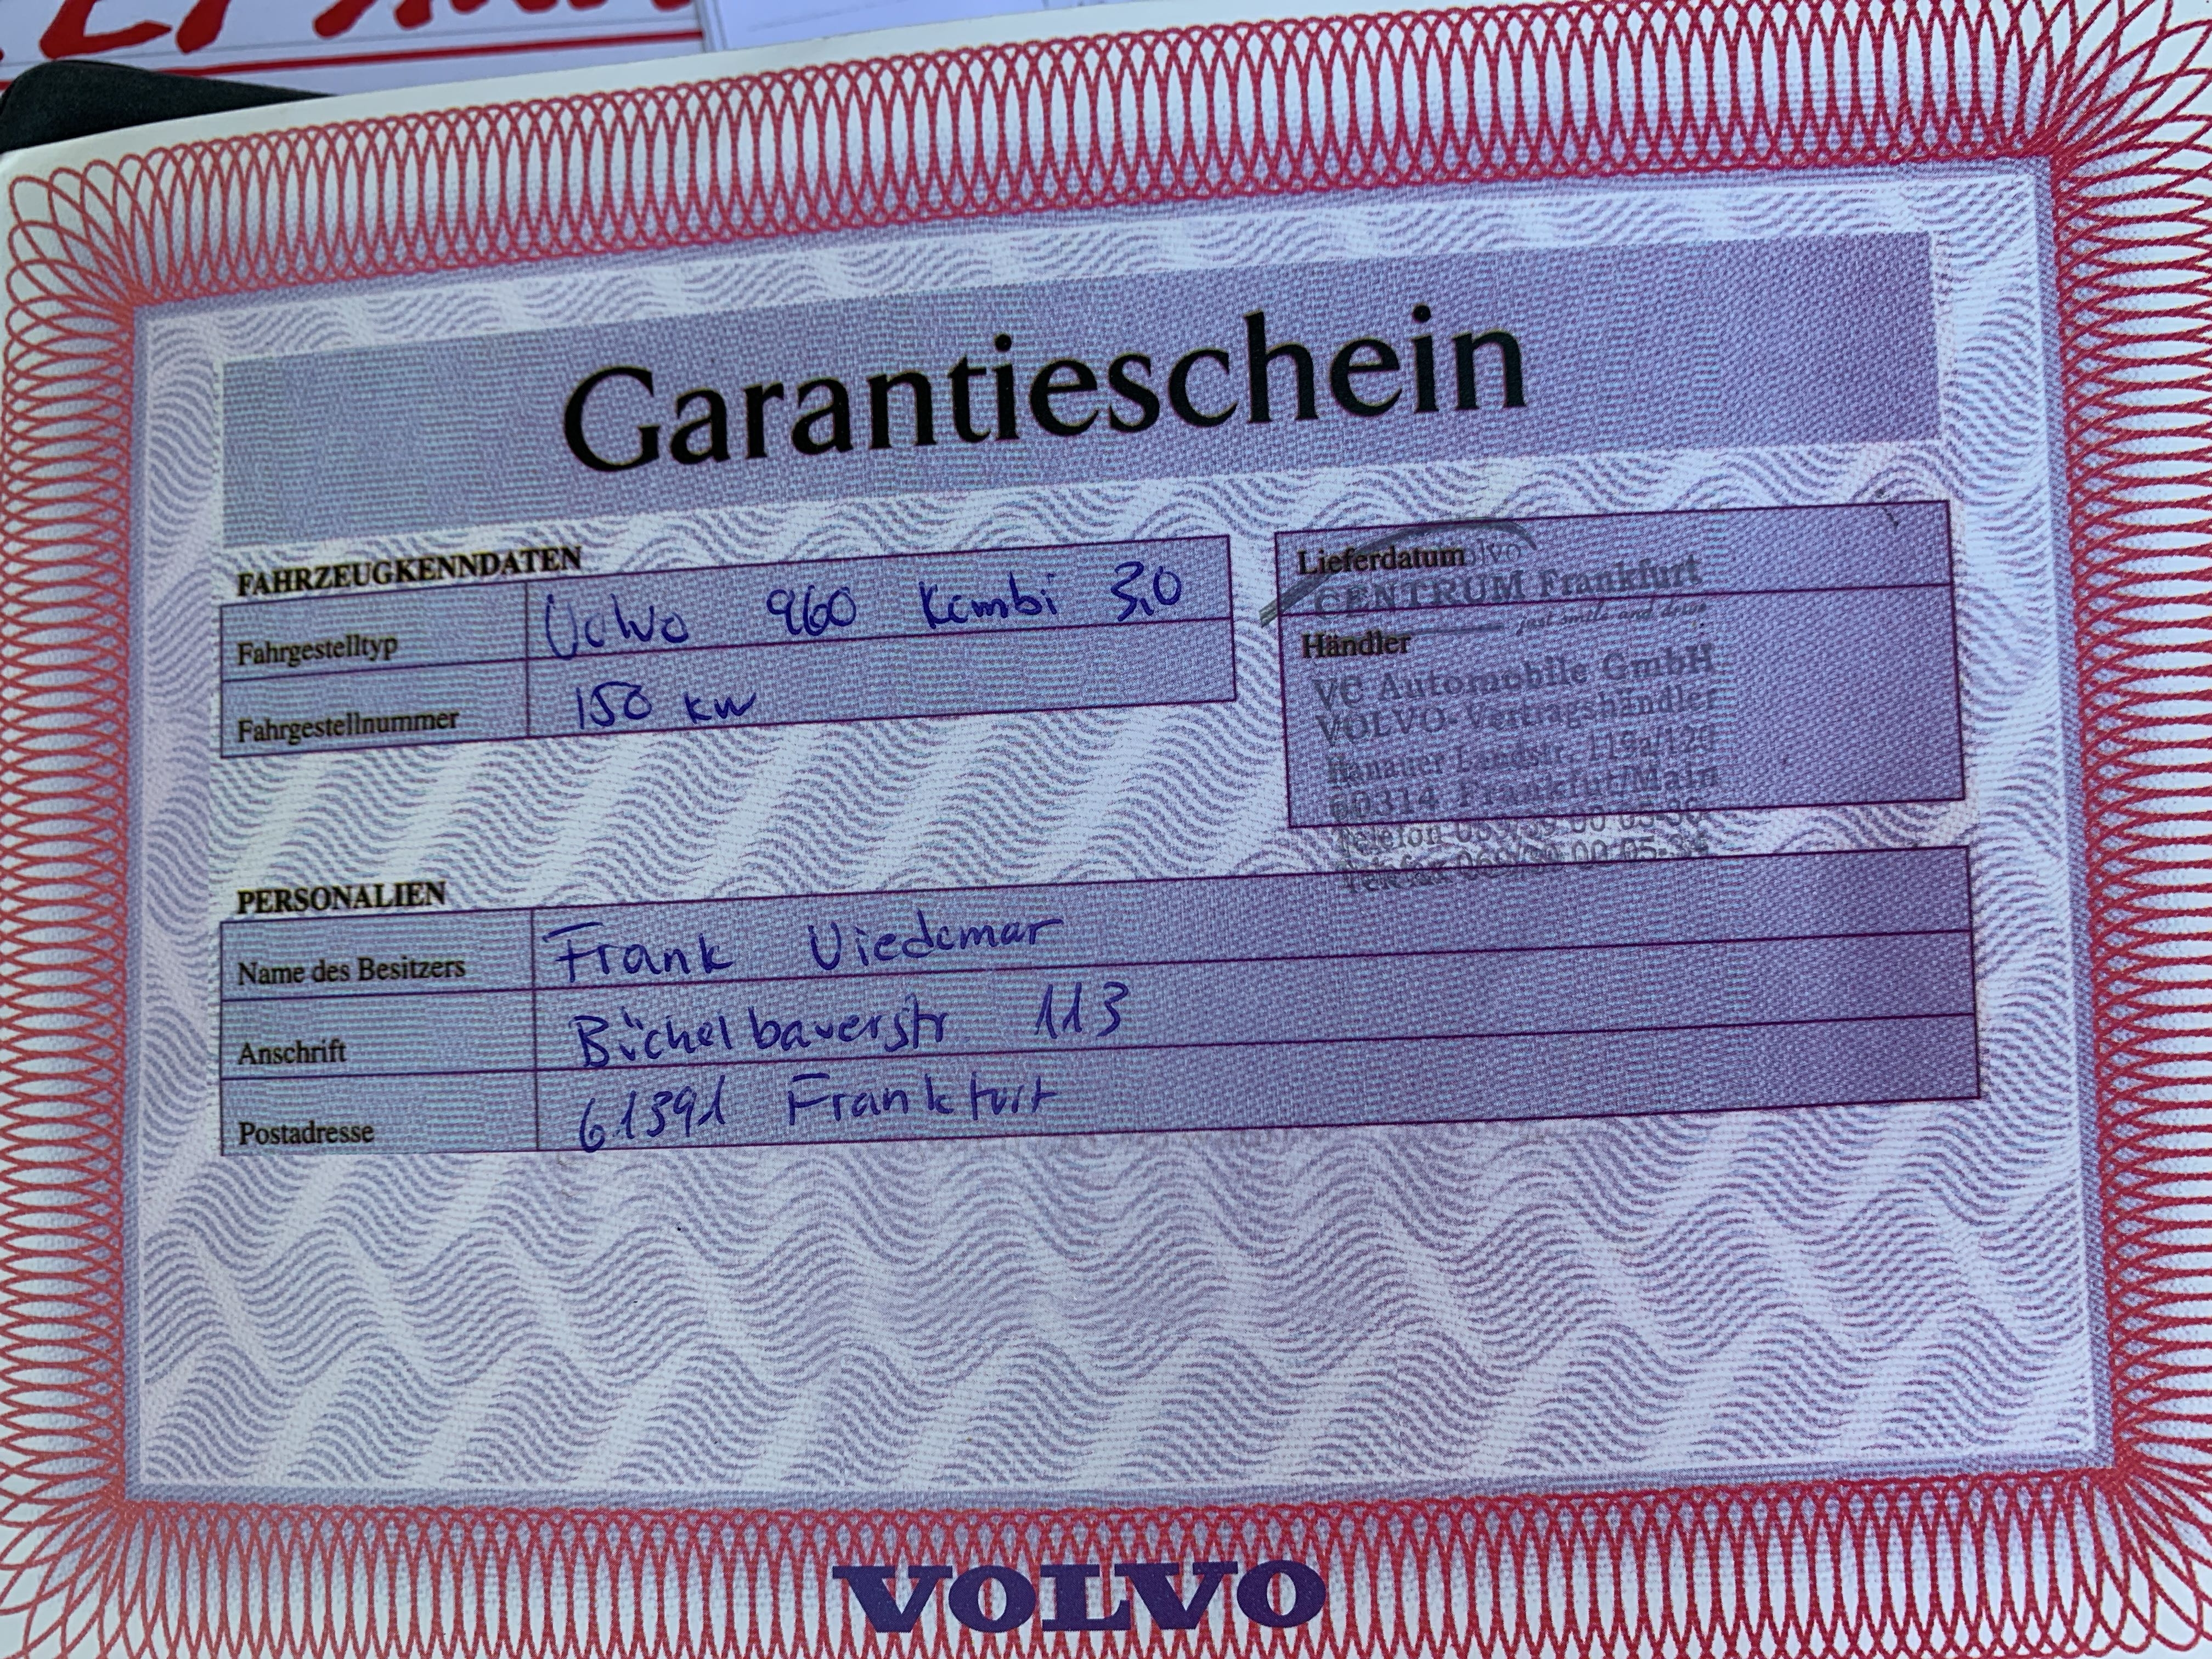 Garantieschein
FAHRZEUGKENNDATEN
Fahrgestelltyp Volvo 960 Kombi 3,0
Fahrgestellnummer 150 kw
Lieferdatum
Volvo
CENTRUM Frankfurt
just smile and drive
Händler
VC Automobile GmbH
VOLVO-Vertragshändler
Hanauer Landstr. 119a/120
60314 Frankfut/Main
Telefon
Telefax
PERSONALIEN
Name des Besitzers Frank Viedomar
Anschrift Büchelbauerstr 113
Postadresse 61391 Frankfurt
VOLVO